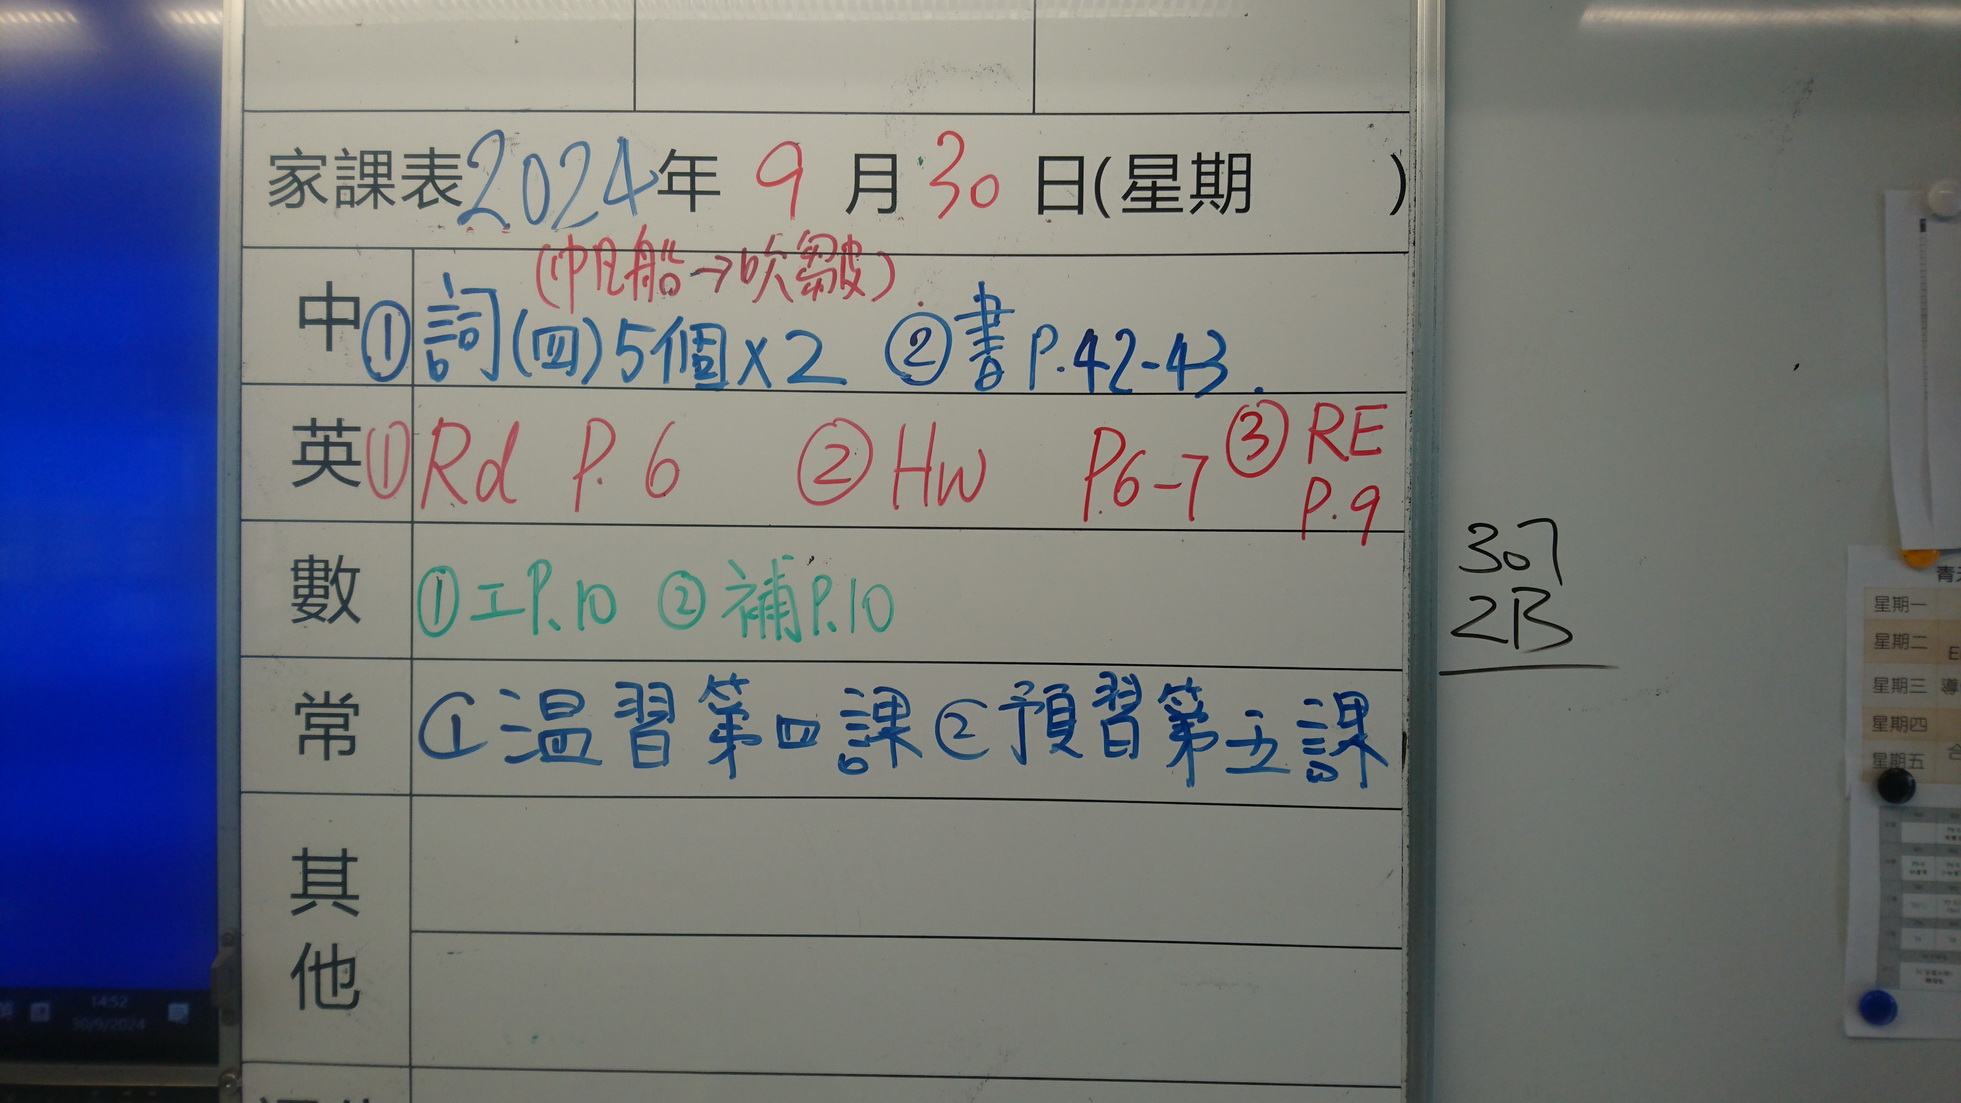 家課表2024年 9 月 30 日(星期 )
(帆船→吹皺)
中 ①詞(四)5個×2 ②書P.42-43.
英 ①Rd P.6 ②Hw P.6-7 ③RE P.9
數 ①工P.10 ②補P.10
常 ①温習第四課②預習第五課
其他
307
2B
星期一
星期二
星期三 導
星期四
星期五 合
14:52
30/9/2024